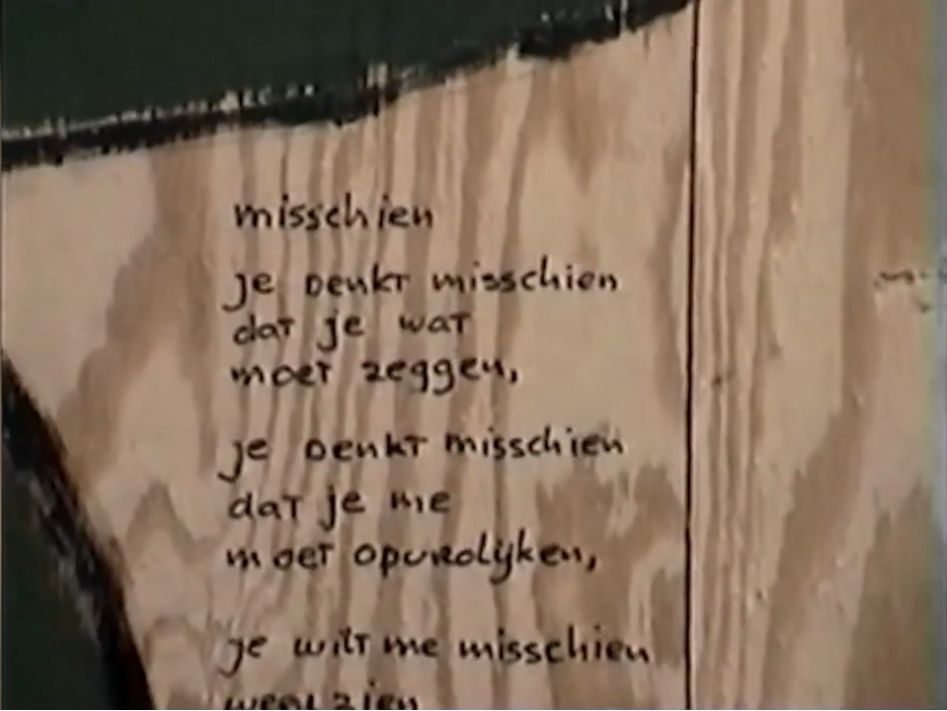 misschien
je denkt misschien
dat je wat
moet zeggen,
je denkt misschien
dat je me
moet opvrolijken,
je wilt me misschien
weer zien